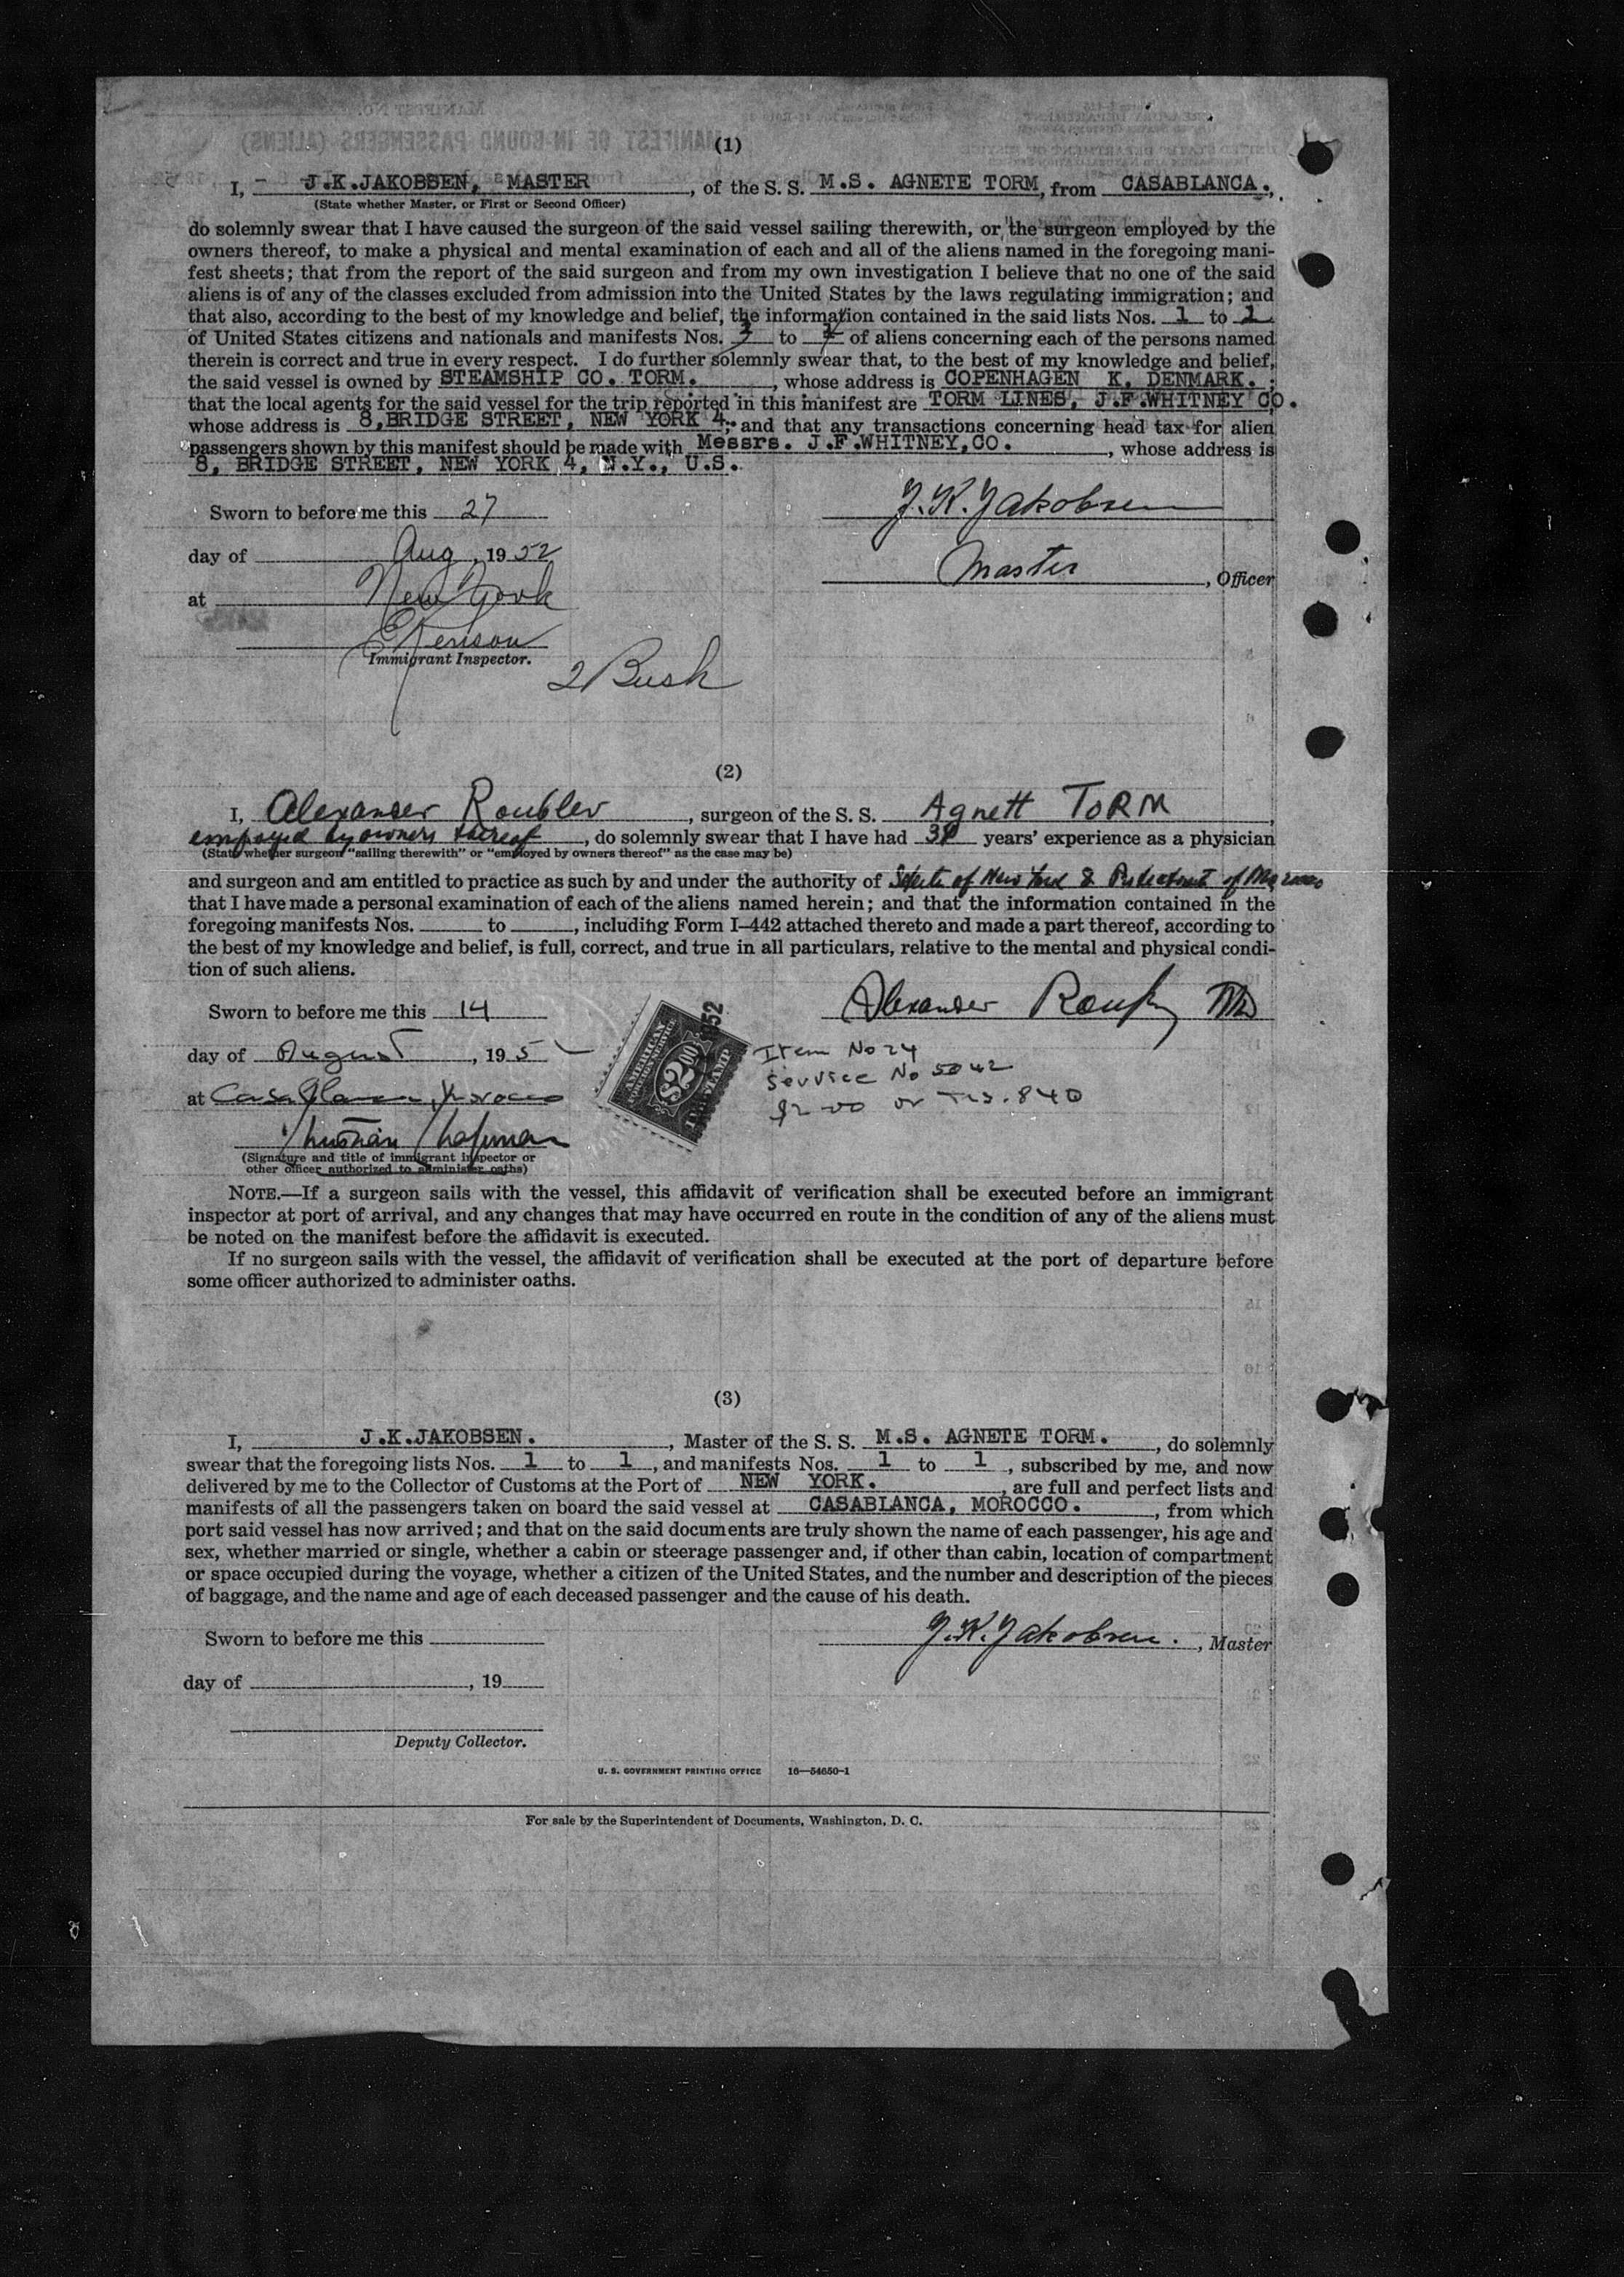 (1)
I, J.K.JAKOBSEN, MASTER, of the S. S. M.S. AGNETE TORM, from CASABLANCA.,
(State whether Master, or First or Second Officer)
do solemnly swear that I have caused the surgeon of the said vessel sailing therewith, or the surgeon employed by the
owners thereof, to make a physical and mental examination of each and all of the aliens named in the foregoing mani-
fest sheets; that from the report of the said surgeon and from my own investigation I believe that no one of the said
aliens is of any of the classes excluded from admission into the United States by the laws regulating immigration; and
that also, according to the best of my knowledge and belief, the information contained in the said lists Nos. 1 to 1
of United States citizens and nationals and manifests Nos. to of aliens concerning each of the persons named
therein is correct and true in every respect. I do further solemnly swear that, to the best of my knowledge and belief,
the said vessel is owned by STEAMSHIP CO. TORM., whose address is COPENHAGEN K, DENMARK. ;
that the local agents for the said vessel for the trip reported in this manifest are TORM LINES, J.F.WHITNEY CO.
whose address is 8,BRIDGE STREET, NEW YORK 4; and that any transactions concerning head tax for alien
passengers shown by this manifest should be made with Messrs. J.F.WHITNEY,CO., whose address is
8, BRIDGE STREET, NEW YORK 4, N.Y., U.S.
Sworn to before me this 27
J.K.Jakobsen
day of Aug, 1952
Master, Officer
at New York
Immigrant Inspector.
2 Bush
(2)
I, Alexander Roublev, surgeon of the S. S. Agnett TORM,
employed by owners thereof, do solemnly swear that I have had years' experience as a physician
(State whether surgeon "sailing therewith" or "employed by owners thereof" as the case may be)
and surgeon and am entitled to practice as such by and under the authority of State of New York & Protectorat of Morocco
that I have made a personal examination of each of the aliens named herein; and that the information contained in the
foregoing manifests Nos. to , including Form I-442 attached thereto and made a part thereof, according to
the best of my knowledge and belief, is full, correct, and true in all particulars, relative to the mental and physical condi-
tion of such aliens.
Sworn to before me this 14
Alexander MD
day of August, 195
at Casablanca, Morocco
AMERICAN
FOREIGN SERVICE
$2.00
FEE STAMP
1952
Item No 24
Service No 5042
$2.00 or Frs. 840
Christian Chapman
(Signature and title of immigrant inspector or
other officer authorized to administer oaths)
NOTE.—If a surgeon sails with the vessel, this affidavit of verification shall be executed before an immigrant
inspector at port of arrival, and any changes that may have occurred en route in the condition of any of the aliens must
be noted on the manifest before the affidavit is executed.
If no surgeon sails with the vessel, the affidavit of verification shall be executed at the port of departure before
some officer authorized to administer oaths.
(3)
I, J.K.JAKOBSEN., Master of the S. S. M.S. AGNETE TORM., do solemnly
swear that the foregoing lists Nos. 1 to 1, and manifests Nos. 1 to 1, subscribed by me, and now
delivered by me to the Collector of Customs at the Port of NEW YORK., are full and perfect lists and
manifests of all the passengers taken on board the said vessel at CASABLANCA, MOROCCO., from which
port said vessel has now arrived; and that on the said documents are truly shown the name of each passenger, his age and
sex, whether married or single, whether a cabin or steerage passenger and, if other than cabin, location of compartment
or space occupied during the voyage, whether a citizen of the United States, and the number and description of the pieces
of baggage, and the name and age of each deceased passenger and the cause of his death.
Sworn to before me this
J.K.Jakobsen., Master
day of , 19
Deputy Collector.
U. S. GOVERNMENT PRINTING OFFICE 16—54650-1
For sale by the Superintendent of Documents, Washington, D. C.